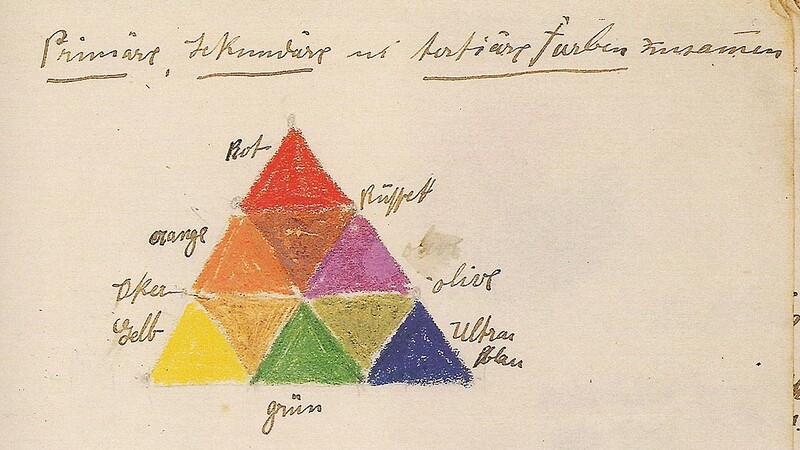 Primäre, Sekundäre u tertiäre Farben zusamen
Rot
Rüssett
orange
olive
Oker
olive
Gelb
Ultra
blau
grün